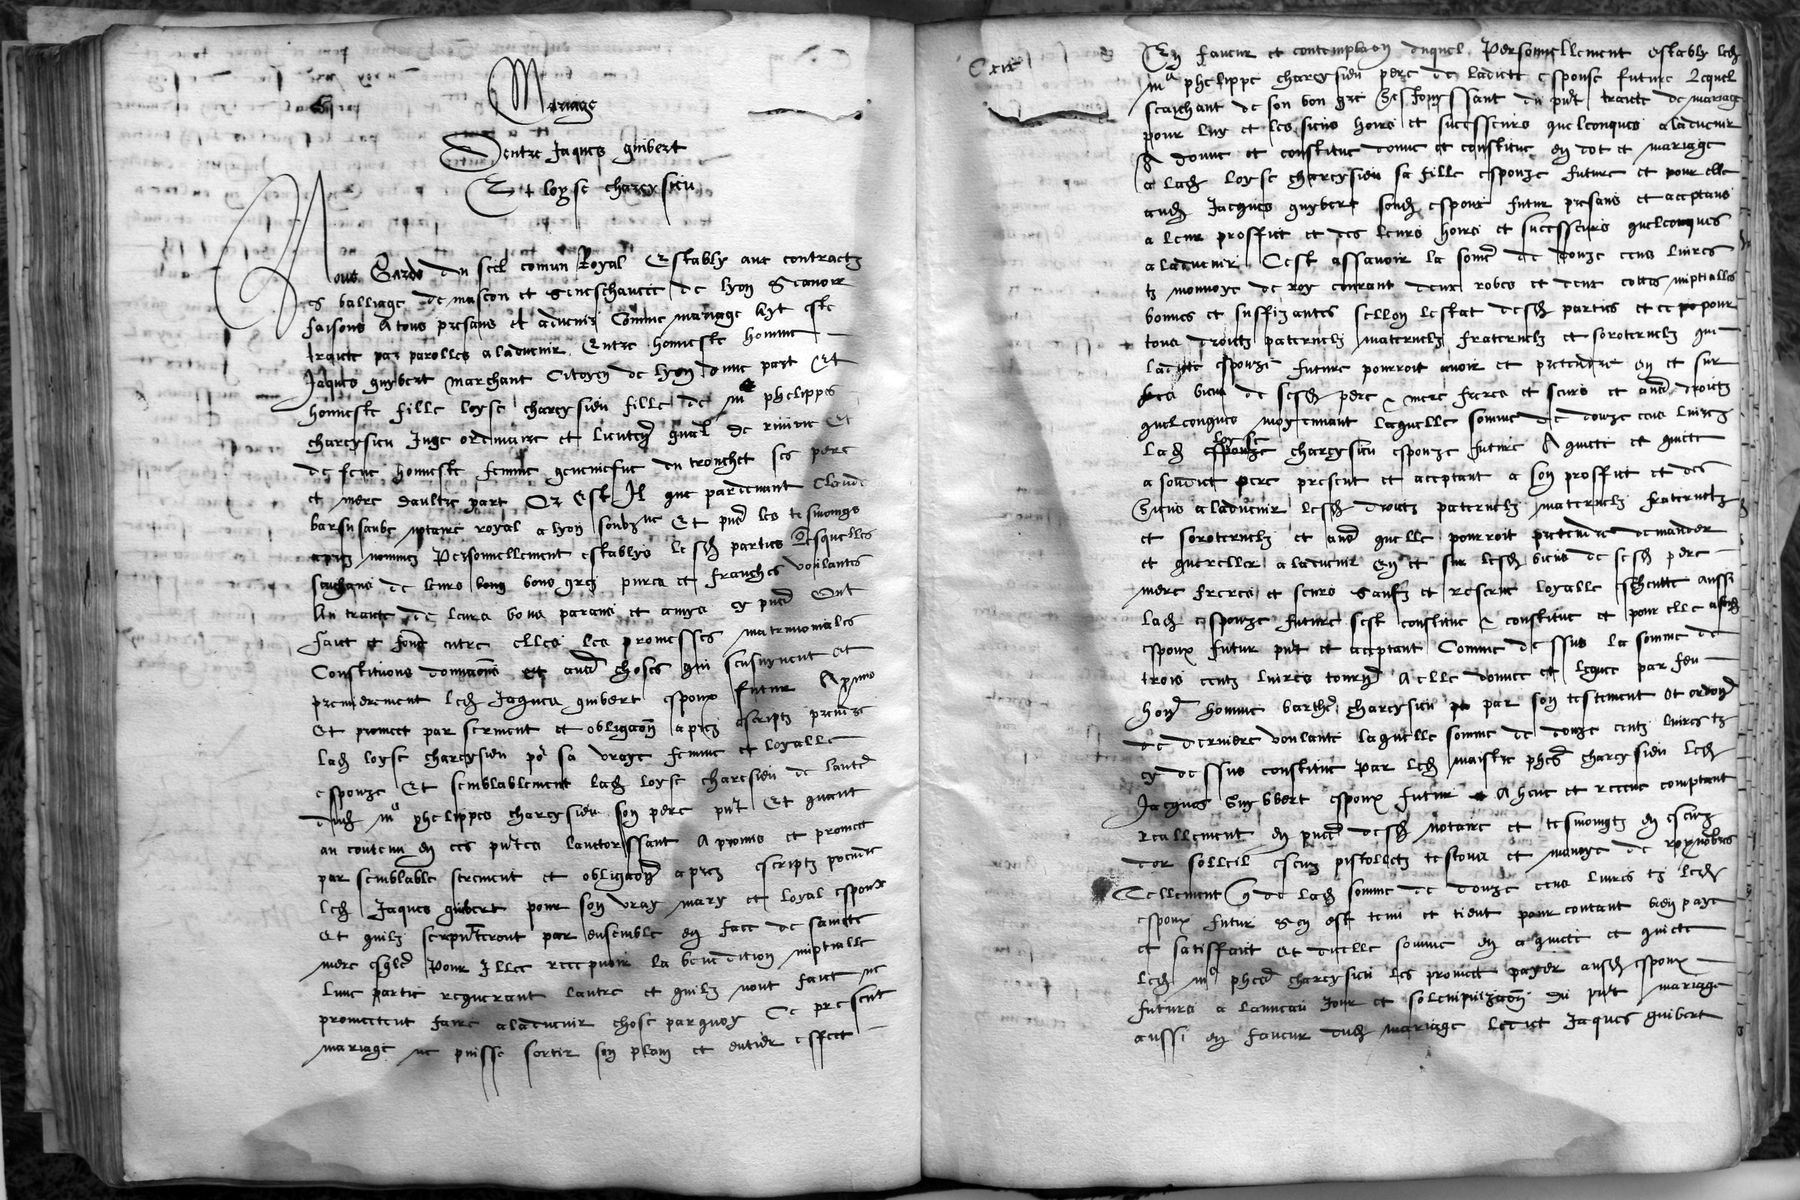 Mariage
Dentre Jaques guibert
Et loyse chareysieu
Nous Garde du scel comun Royal Estably aux contractz
es balliage de mascon et seneschaucee de lyon Scavoir
faisons A tous presans et advenir Comme mariage ayt este
traicte par parolles a ladvenir Entre honneste homme
Jaques guybert marchant Citoyen de lyon dune part Et
honneste fille loyse chareysieu fille de me phelippe
chareysieu Juge ordinaire et lieuten gnal de Et
de feue honneste femme geneviefve du tronchet ses pere
et mere daultre part Or Est Il que pardevant Claude
notaire royal a lyon soubzne Et pnce les tesmoings
apres nommez Personnellement establys lesd parties Lesquelles
saichans de leurs bons grez pures et franches voulantes
Au traicte de leurs bons parans et amys cy pns Ont
faict et font entre elles les promesses matrimoniales
Constitucions donnaons et aues choses qui sensuyvent Et
premierement led Jaques guibert espoux futur A promis
et promect par serment et obligaon apres escriptz prendre
lad loyse chareysieu por sa vraye femme et loyalle
espouze Et semblablement lad loyse charesieu de lautte
dud me phelippes chareysieu son pere pnt Et quant
au contenu en ces pntes lauctorissant A promis et promect
par semblable serement et obligaon apres escriptz prendre
led Jaques guibert pour son vray mary et loyal espoux
Et quilz serpnteront par ensemble en face de saincte
mere esglise Pour Illec recepvoir la benediction nuptialle
lune partie requerant lautre et quilz nont faict ne
promectent faire a ladvenir chose parquoy Ce present
mariage ne puisse sortir son plain et entier effect
En faveur et contemplaon duquel Personnellement estably led
me phelippe chareysieu pere de ladicte espouse future Lequel
saichant de son bon gre Sesjouyssant du pnt traicte de mariage
pour luy et les siens hoirs et successeurs quelconques a ladvenir
A donne et constitue donne et constitue en dot et mariage
a lad loyse chareysieu sa fille espouze future et pour elle
aud Jacques guybert sond espoux futur presans et acceptans
a leur proffict et des leurs hoirs et successeurs quelconques
a ladvenir Cest assavoir la some de douze cens livres
tz monnoye de roy courant deux robes et deux cottes nuptialles
bonnes et suffizantes sellon lestat desd parties et ce pour
tous droictz paternelz maternelz fraternelz et sororternelz que
ladicte espouze future pourroit avoir et pretendre en et sur
les biens de sesd pere & mere freres et seurs et aues droictz
quelconques moyennant laquelle somme de douze cens livres
lad loyse chareysieu espouze future A quicte et quicte
a sondict pere present et acceptant a son proffict et des
siens a ladvenir lesd droictz paternelz maternelz fraternelz
et sororternelz et aues quelle pourroit pretendre demander
et quereller a ladvenir en et sur lesd biens de sesd pere
mere freres et seurs Saufz et reserve loyalle escheutte aussi
lad espouze future sest constitue & constitue et pour elle aud
espoux futur pnt et acceptant Comme dessus la somme de
trois centz livres tournz A elle donnee et leguee par feu
homme barthe chareysieu par son testement et ordonn
de derniere voulante laquelle somme de douze centz livres tz
cy dessus constitue par led maistre phes chareysieu led
Jacques Guybbert espoux futur A heue et receue comptant
reallement en pnce desd notaire et tesmoingz en escuz
dor solleil escuz pistolletz testons et monnoye de
Tellement que de lad somme de douze cens livres tz led
espoux futur Sen est tenu et tient pour contant bien paye
et satisfaict Et dicelle somme en a quicte et quicte
led me phes chareysieu les promect payer ausd espoux
futurs a lanneau Jour et solempnizaon du pnt mariage
aussi en faveur dud mariage ledict Jaques guibert